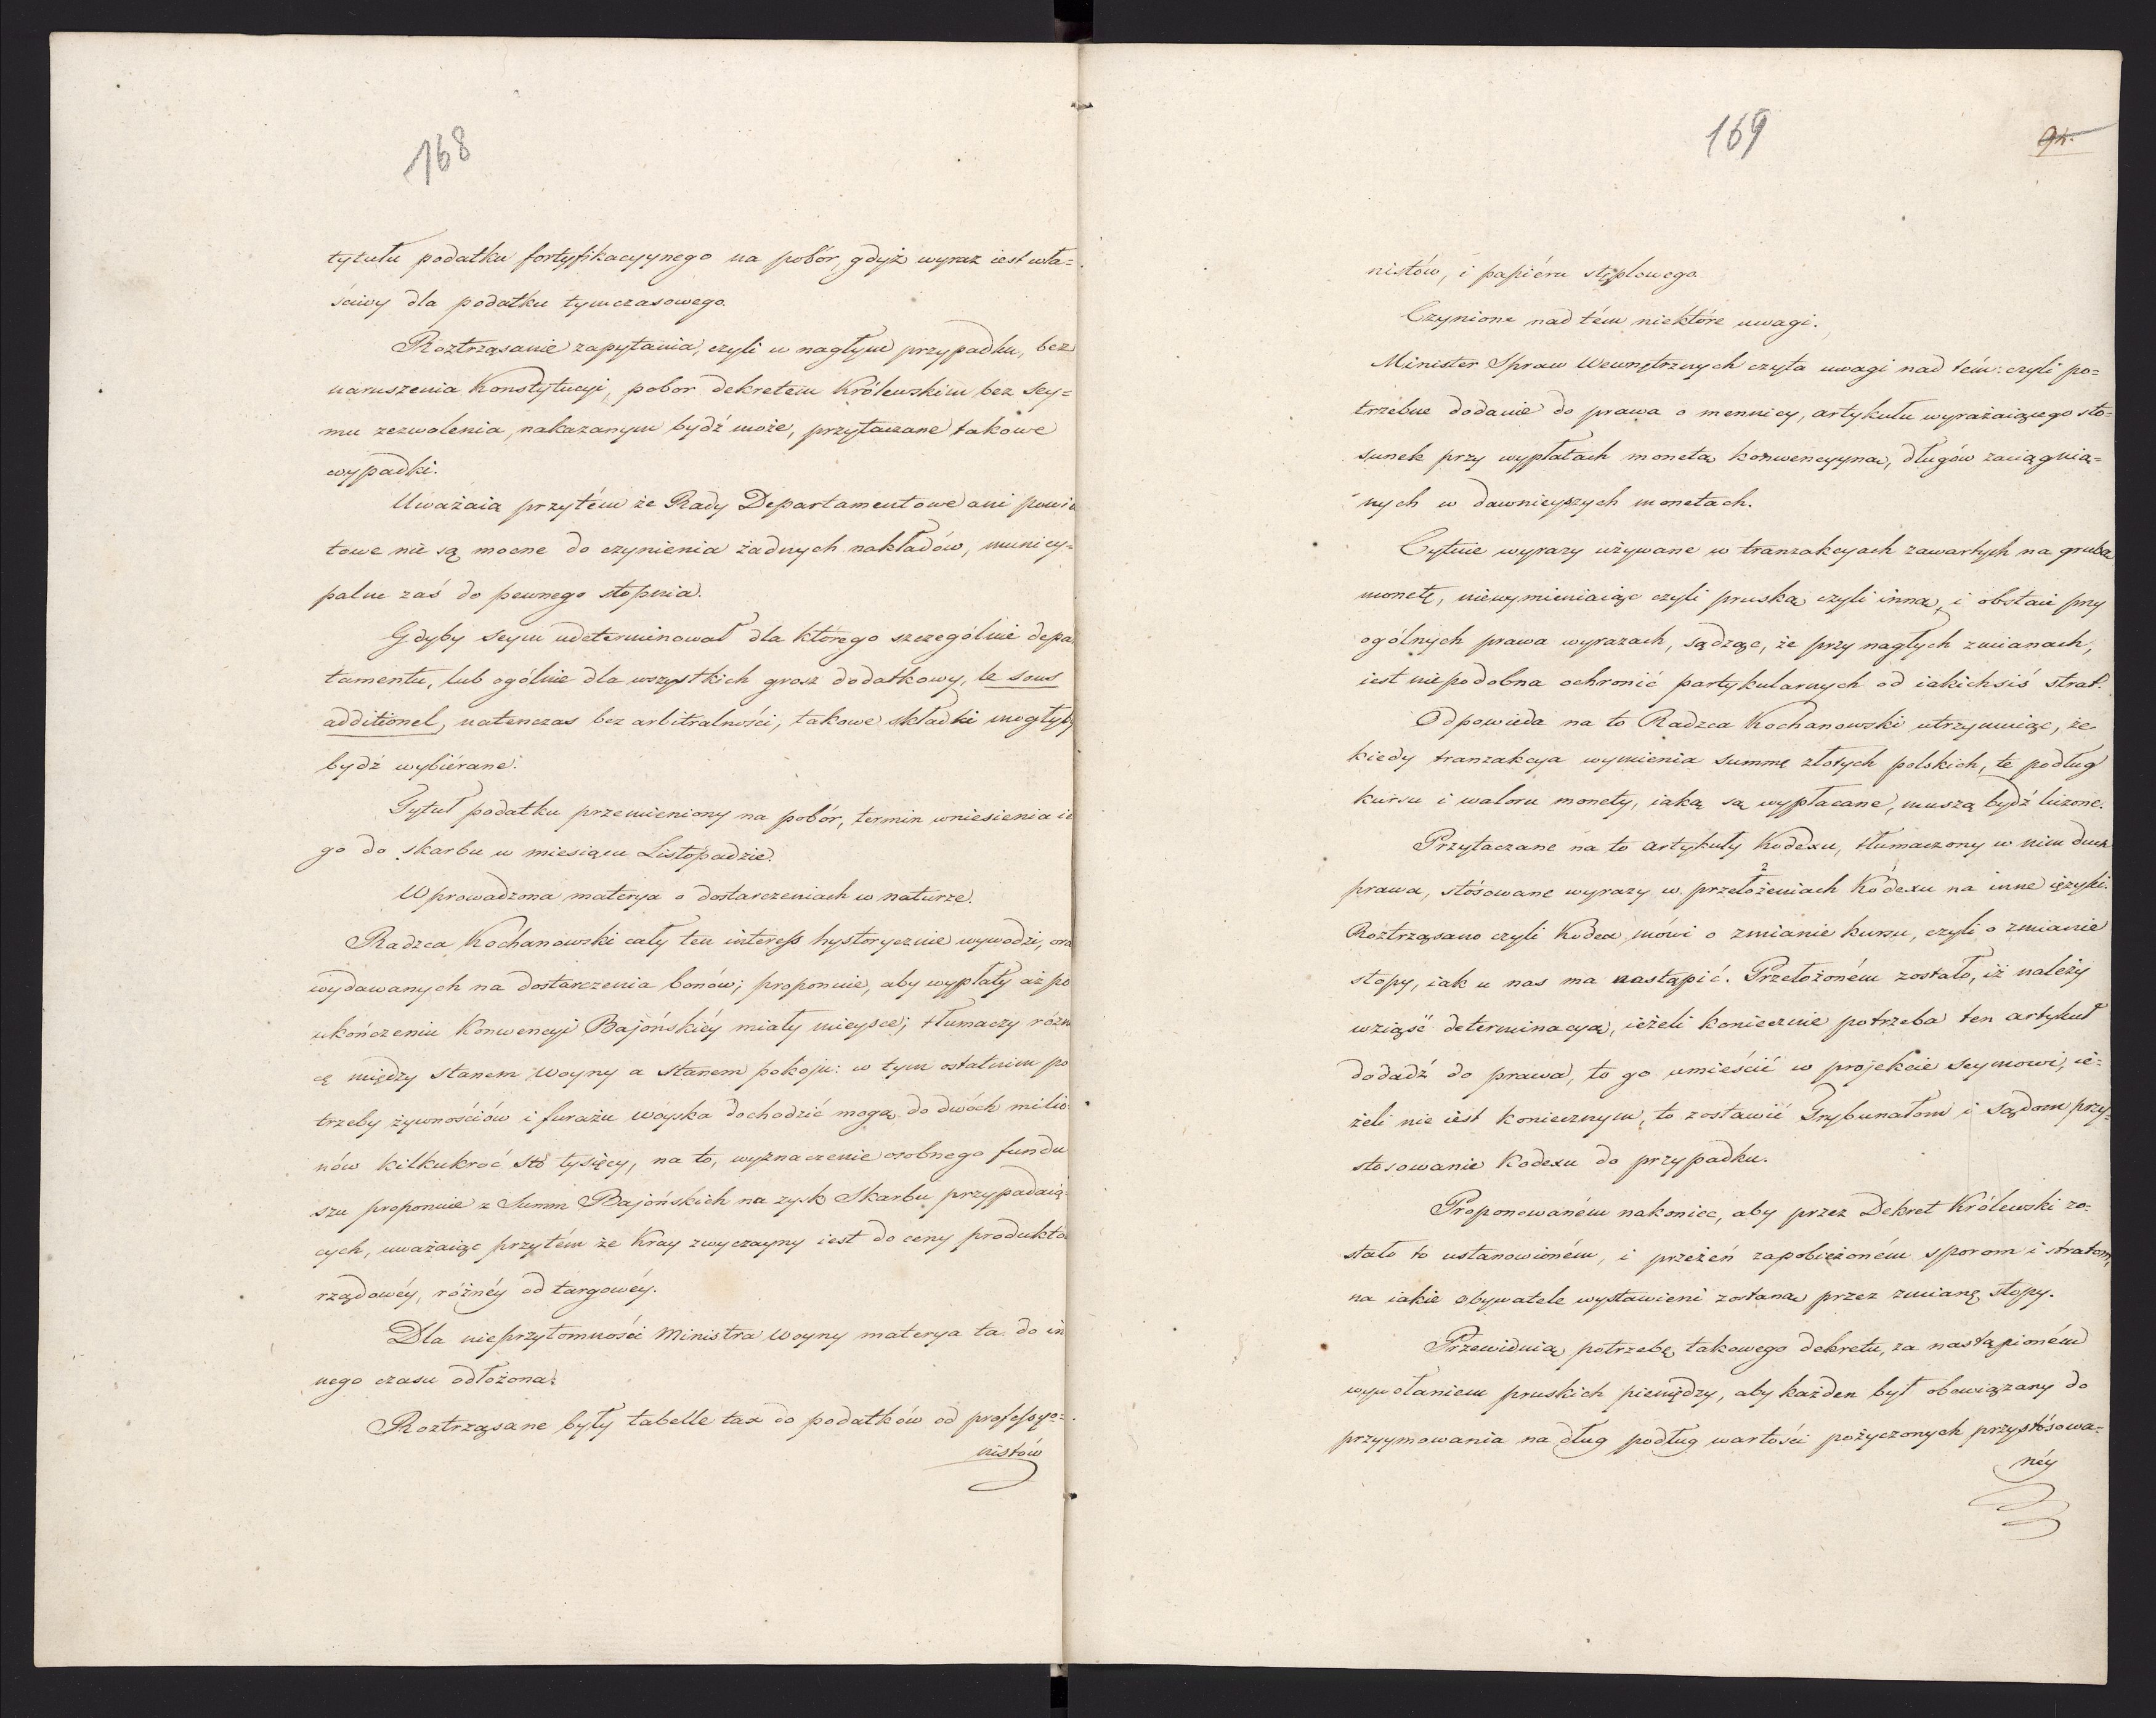 168
tytułu podatku fortyfikacyynego na pobór, gdyż wyraz iest wła=
ściwy dla podatku tymczasowego.
Roztrząsanie zapytania, czyli w nagłym przypadku, bez
naruszenia Konstytucyi, pobor dekretem Królewskim bez Sey=
mu zezwolenia, nakazanym bydź może, przytaczane takowe
wypadki.
Uważaią przytém że Rady Departamentowe ani powia
towe nie są mocne do czynienia żadnych nakładów, municy=
palne zaś do pewnego stopnia.
Gdyby Seym udeterminował dla którego szczególnie depar
tamentu, lub ogólnie dla wszystkich grosz dodatkowy, le sous
additionel, natenczas bez arbitralności, takowe składki mogłyby
bydź wybiérane.
Tytuł podatku przemieniony na pobór, termin wniesienia ie
go do skarbu w miesiącu Listopadzie.
Wprowadzona materya o dostarczeniach w naturze.
Radzca Kochanowski cały ten interess hystorycznie wywodzi, oraz
wydawanych na dostarczenia bonów; proponuie, aby wypłaty aż po
ukończeniu Konwencyi Bajońskiéy miały mieysce; tłumaczy różni
cę między stanem Woyny a Stanem pokoju: w tym ostatnim po
trzeby żywnościów i furażu Woyska dochodzić mogą do dwóch milio
nów kilkukroć sto tysięcy, na to, wyznaczenie osobnego fundu
szu proponuie z Summ Bajońskich na zysk Skarbu przypadaią
cych, uważaiąc przytém że Kray zwyczayny iest do ceny produktów
rządowéy, różnéy od targowéy.
Dla nieprzytomności Ministra Woyny materya ta do in
nego czasu odłożona.
Roztrząsane były tabelle tax do podatków od professyo=
nistów
169
94.
nistów, i papiéru stęplowego.
Czynione nad tém niektóre uwagi.
Minister Spraw Wewnętrznych czyta uwagi nad tém: czyli po=
trzebne dodanie do prawa o mennicy, artykułu wyrażaiącego sto=
sunek przy wypłatach monetą konwencyyną, długów zaciągnię=
nych w dawnieyszych monetach.
Cytuie wyrazy używane w tranzakcyach zawartych na grubą
monetę, niewymieniaiąc czyli pruską czyli inną, i obstaie przy
ogólnych prawa wyrazach, sądząc, że przy nagłych zmianach,
iest niepodobna ochronić partykularnych od iakichsiś strat.
Odpowiada na to Radzca Kochanowski utrzymuiąc, że
kiedy tranzakcya wymienia summę złotych polskich, te podług
kursu i waloru monety, iaką są wypłacane, muszą bydź liczone.
Przytaczane na to artykuły Kodexu, tłumaczony w nim duch
prawa, stósowane wyrazy w przełożeniach Kodexu na inne ięzyki.
Roztrząsano czyli Kodex mówi o zmianie kursu, czyli o zmianie
stopy, iak u nas ma nastąpić. Przełożoném zostało, iż należy
wziąść determinacyą, ieżeli koniecznie potrzeba ten artykuł
dodadź do prawa, to go umieścić w projekcie seymowi, ie=
żeli nie iest koniecznym, to zostawić Trybunałom i Sądom przy=
stosowanie Kodexu do przypadku.
Proponowaném nakoniec, aby przez Dekret Królewski zo=
stało to ustanowioném, i przezeń zapobieżoném sporom i stratom,
na iakie obywatele wystawieni zostaną przez zmianę stopy.
Przewiduią potrzebę takowego dekretu, za nastąpioném
wywołaniem pruskich pieniędzy, aby każden był obowiązany do
przyymowania na dług podług wartości pożyczonych przystósowa=
néy